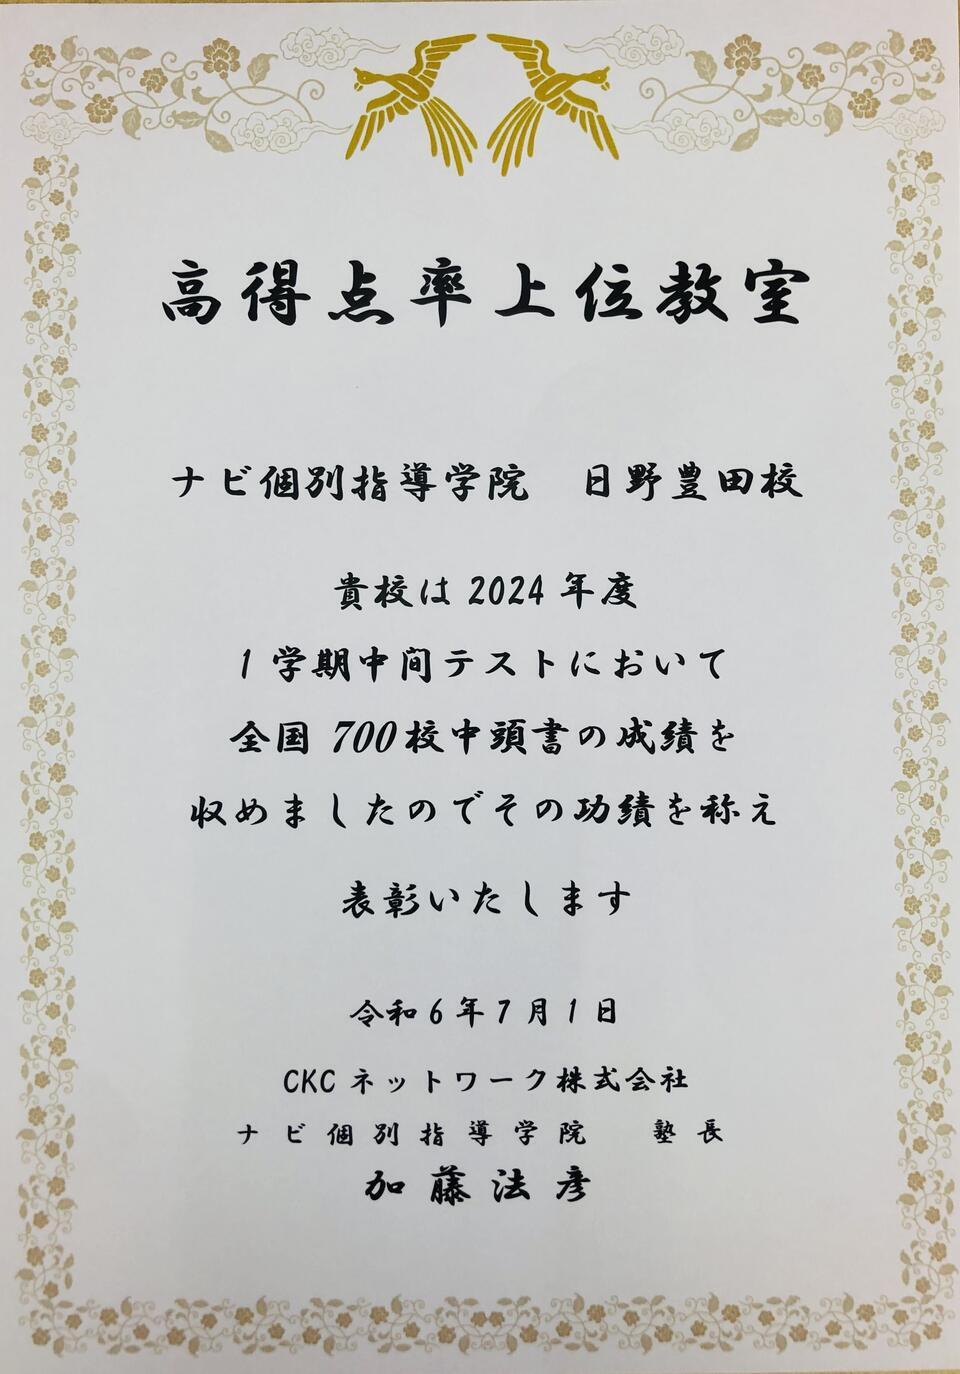 高得点率上位教室
ナビ個別指導学院　日野豊田校
貴校は2024年度
1学期中間テストにおいて
全国700校中頭書の成績を
収めましたのでその功績を称え
表彰いたします
令和6年7月1日
CKCネットワーク株式会社
ナビ個別指導学院　塾長
加藤法彦